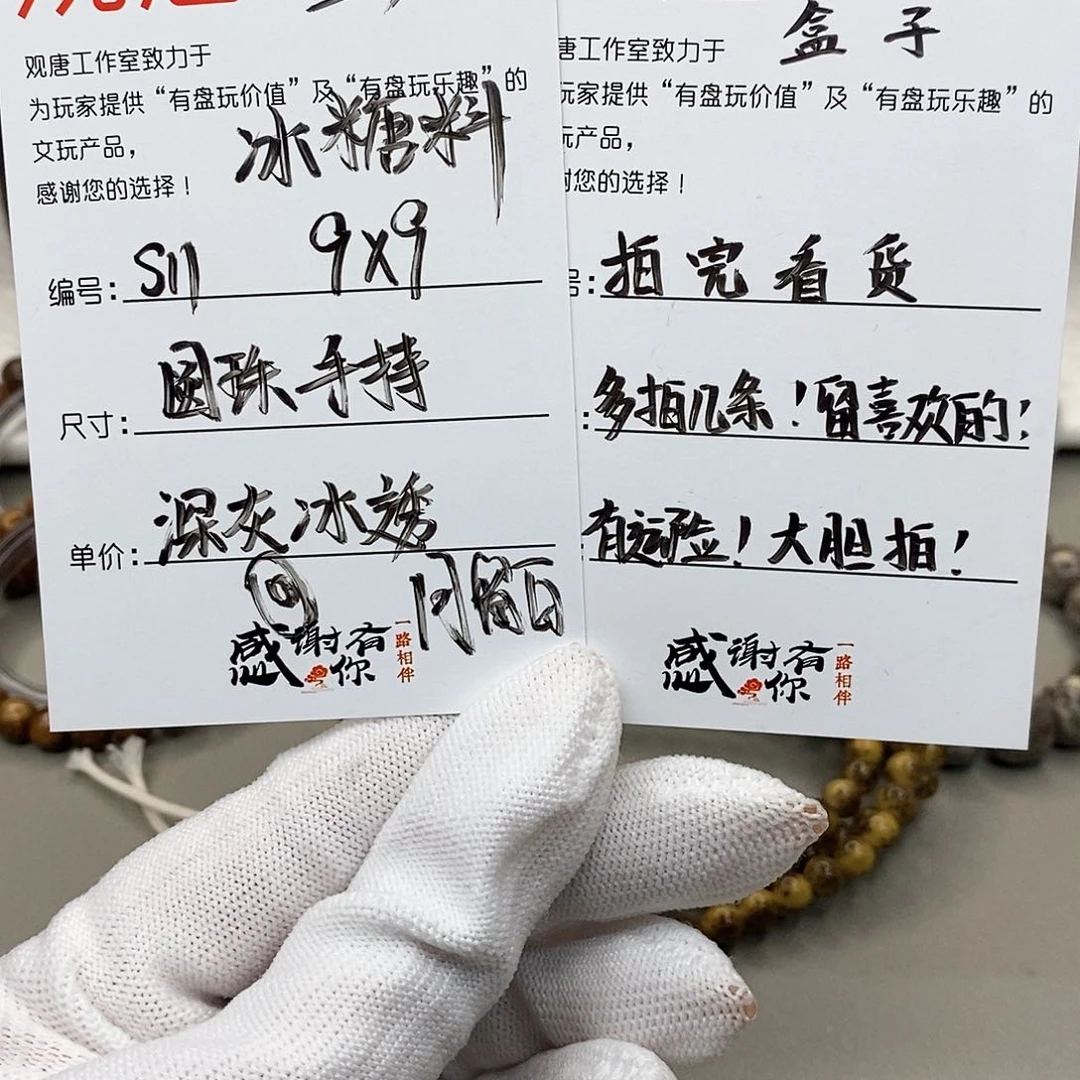 观唐工作室致力于
为玩家提供“有盘玩价值”及“有盘玩乐趣”的
文玩产品，
冰糖料
感谢您的选择！
编号：S11 9X9
尺寸：圆珠手持
单价：深灰冰透
感谢有你
一路相伴
盒子
唐工作室致力于
玩家提供“有盘玩价值”及“有盘玩乐趣”的
玩产品，
谢您的选择！
号：拍完看货
：多拍几条！留喜欢的！
：有运险！大胆拍！
感谢有你
一路相伴